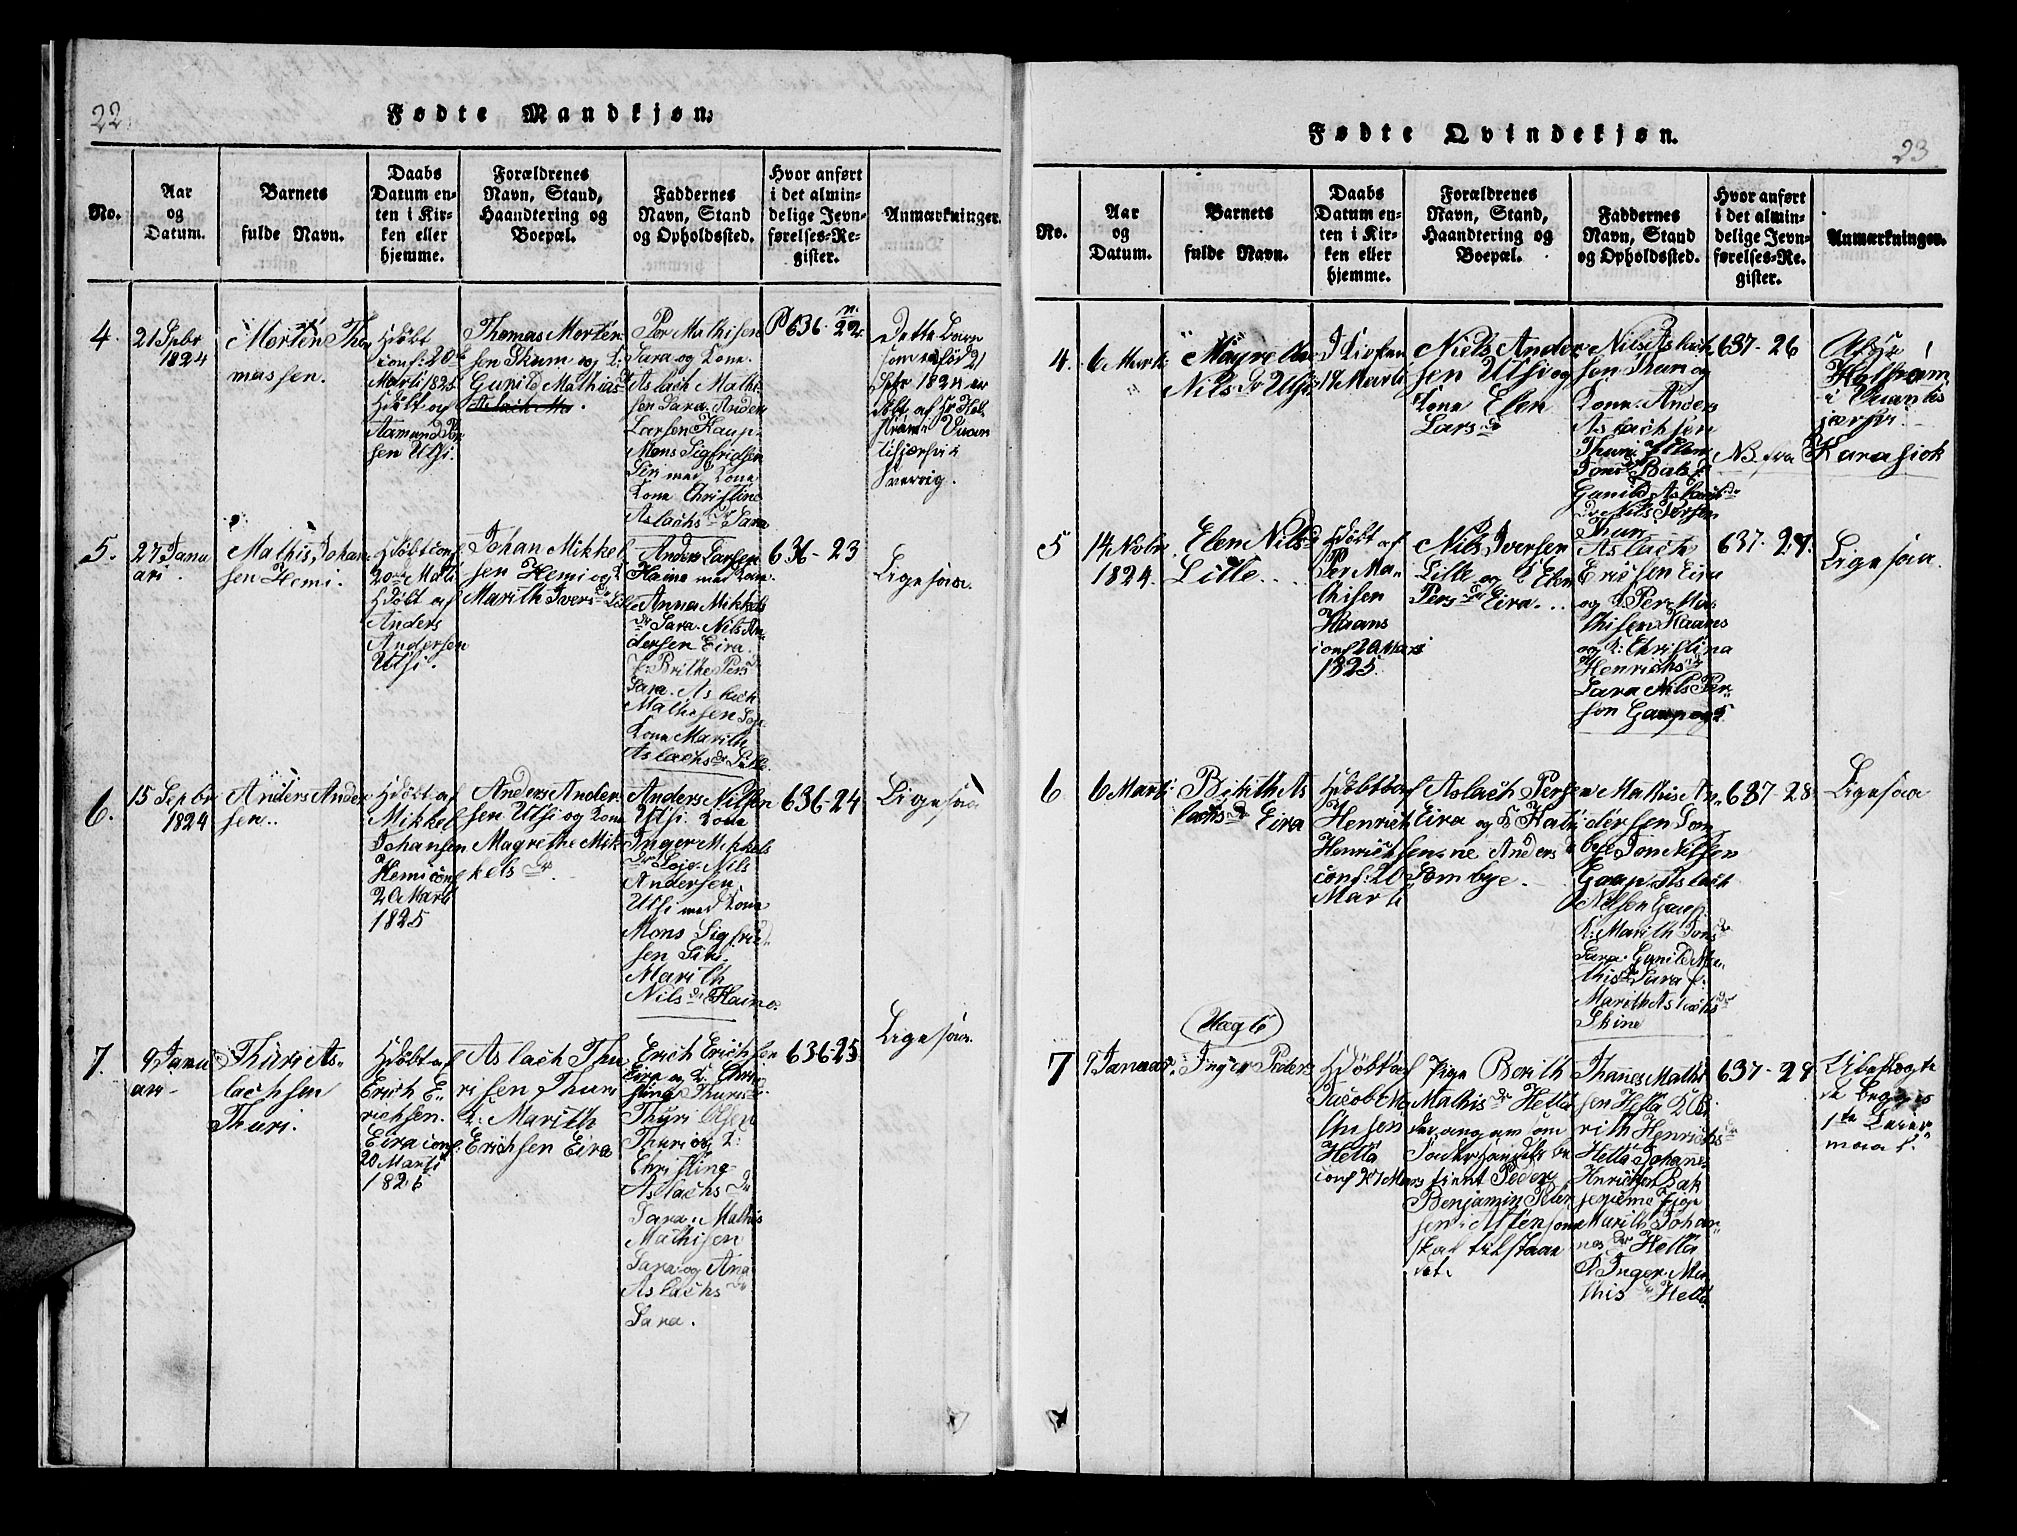 22.
Fødte Mandkjøn.
No.
Aar
og
Datum.
Barnets
fulde Navn.
Daabs
Datum en-
ten i Kir-
ken eller
hjemme.
Forældrenes
Navn, Stand,
Haandtering og
Boepæl.
Faddernes
Navn, Stand
og Opholdssted.
Hvor anført
i det almin-
delige Jevn-
førelses-Re-
gister.
Anmærkninger.
4.
21 Spbr
1824
Morten Tho
massen.
Hdøbt
conf: 20
Marti 1825
Hdøbt af
Aamund
sen Utsi.
Thomas Morten
sen Skum og K.
Gunild Mathis
Per Mathisen
Sara og Kone
Aslach Mathi
sen Sara. Anders
Larsen Kaup
Mons Sigfridsen
Siri med Kone
Kone Christine
Aslachs dr Sara
P 636. n. 22
Dette Barn
som er fød 21
Spbr 1824 er
døbt af Hr Hol
i
Sverrig.
5.
27 Janu
ari.
Mathis Johan
sen Hemi.
Hdøbt conf
20 Marti
Hdøbt af
Anders
Andersen
Utsi.
Johan Mikkel
sen Hemi og K
Marith Ivers dr Lille
Anders Larsen
Haine med Kone
Anna Mikkels
dr Sara. Nils An
dersen Eira.
Brithe Pers dr
Sara. Aslach
Mathisen
Kone Marith
Aslachs dr Lille.
636-23
Ligesaa.
6.
15 Sepbr
1824
Anders Ander
sen.
Hdøbt af
Mikkel
Johansen
Hemi conf
20 Marti
1825
Anders Ander
sen Utsi og Kone
Magrethe Mik
kels dr
Anders Nilsen
Utsi. Kone
Inger Mikkels
dr Nils
Andersen
Utsi med Kone
Mons Sigfrid
sen Siri.
Marith
Nils dr Haino.
636-24
Ligesaa
7.
9 Janu
ari-
Thuri As-
lachsen
Thuri.
Hdøbt af
Erich E-
richsen
Eira conf:
20 Marti
1825
Aslach Thu
risen Thuri
K: Marith
Erichsen Eira
Erich Erichsen
Eira og K. Chri
stine Thuris dr
Thyri Olsen
Thuri og K:
Christine
Aslachs dr
Sara. Mathis
Mathisen
Sara og Ana
Aslachs dr
Sara.
636-25
Ligesaa.
Fødte Qvindekjøn.
23.
No.
Aar
og
Datum.
Barnets
fulde Navn.
Daabs
Datum en-
ten i Kir-
ken eller
hjemme.
Forældrenes
Navn, Stand,
Haandtering og
Boepæl.
Faddernes
Navn, Stand
og Opholdssted.
Hvor anført
i det almin-
delige Jevn-
førelses-Re-
gister.
Anmærkninger.
4.
6 Marti
Nils dr Utsi
I Kirken
14 Marti
Niels Ander
sen Utsi og
Kone Elen
Lars dr
Nils Aslach
sen Thuri og
Kone. Anders
Aslachsen
Thuri. Elen
Gunild Aslachs dr
Nils Iversen
Thuri
637-26
i
NB. fra Karasiok
5
14 Nvbr
1824.
Elen Nils dr
Lille.
Hdøbt af
Per Ma
thisen
Haans
conf 20 Marti
1825.
Nils Iversen
Lille og K Elen
Pers dr Eira.
Aslach
Ericsen Eira
og K Per Ma
thisen Haans
og K: Christina
Henrichs dr
Sara Nils Per
sen Gaup og K
637-27.
Ligesaa.
6
6 Marti
Birith As
lachs dr Eira
Hdøbt af
Henrich
Henrichsen
conf: 20
Marti
Aslach Persen
Eira og K Katri
ne Anders dr
Sombye.
Mathis An
dersen Som
bye. Jon Nilsen
Gaup. Aslach
Nilsen Gaup.
K: Marith Jons dr
Sara. Gunild Ma
this dr Sara.
Marith Aslachs dr
Skine
637-28
Ligesaa
7
9 Januar.
Inger Peders
Hdøbt af
Jacob Ma
thisen
Hetta
conf 27 Marti
Pige Berith
Mathis dr Hetta
der angav som
Fader Handels be
tient Peder
Benjamin Peder
sen i Alten som
skal tilstaae
det.
Johannes Mathi
sen Hetta K Be
rith Henrichs dr
Hetta Johanes
Henrichsen Bak
Pige
Marith Johan
nes dr Hetta
P. Inger Ma
this dr Hetta
637-29
Uægte
de begges
1ste Leier
maal.